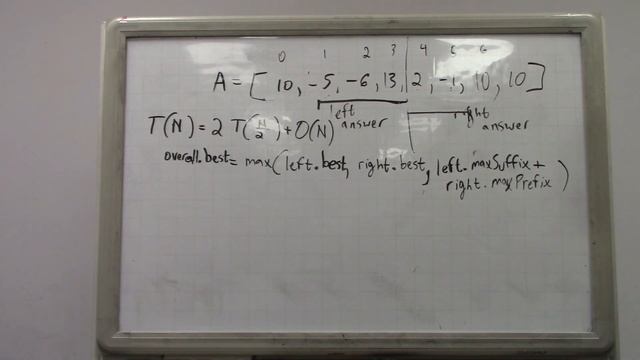 0 1 2 3 4 5 6
A = [ 10, -5, -6, 13, 2, -1, 10, 10 ]
left answer right answer
T(N) = 2 T(N/2) + O(N)
overall.best = max(left.best, right.best, left.maxSuffix +
right.maxPrefix)